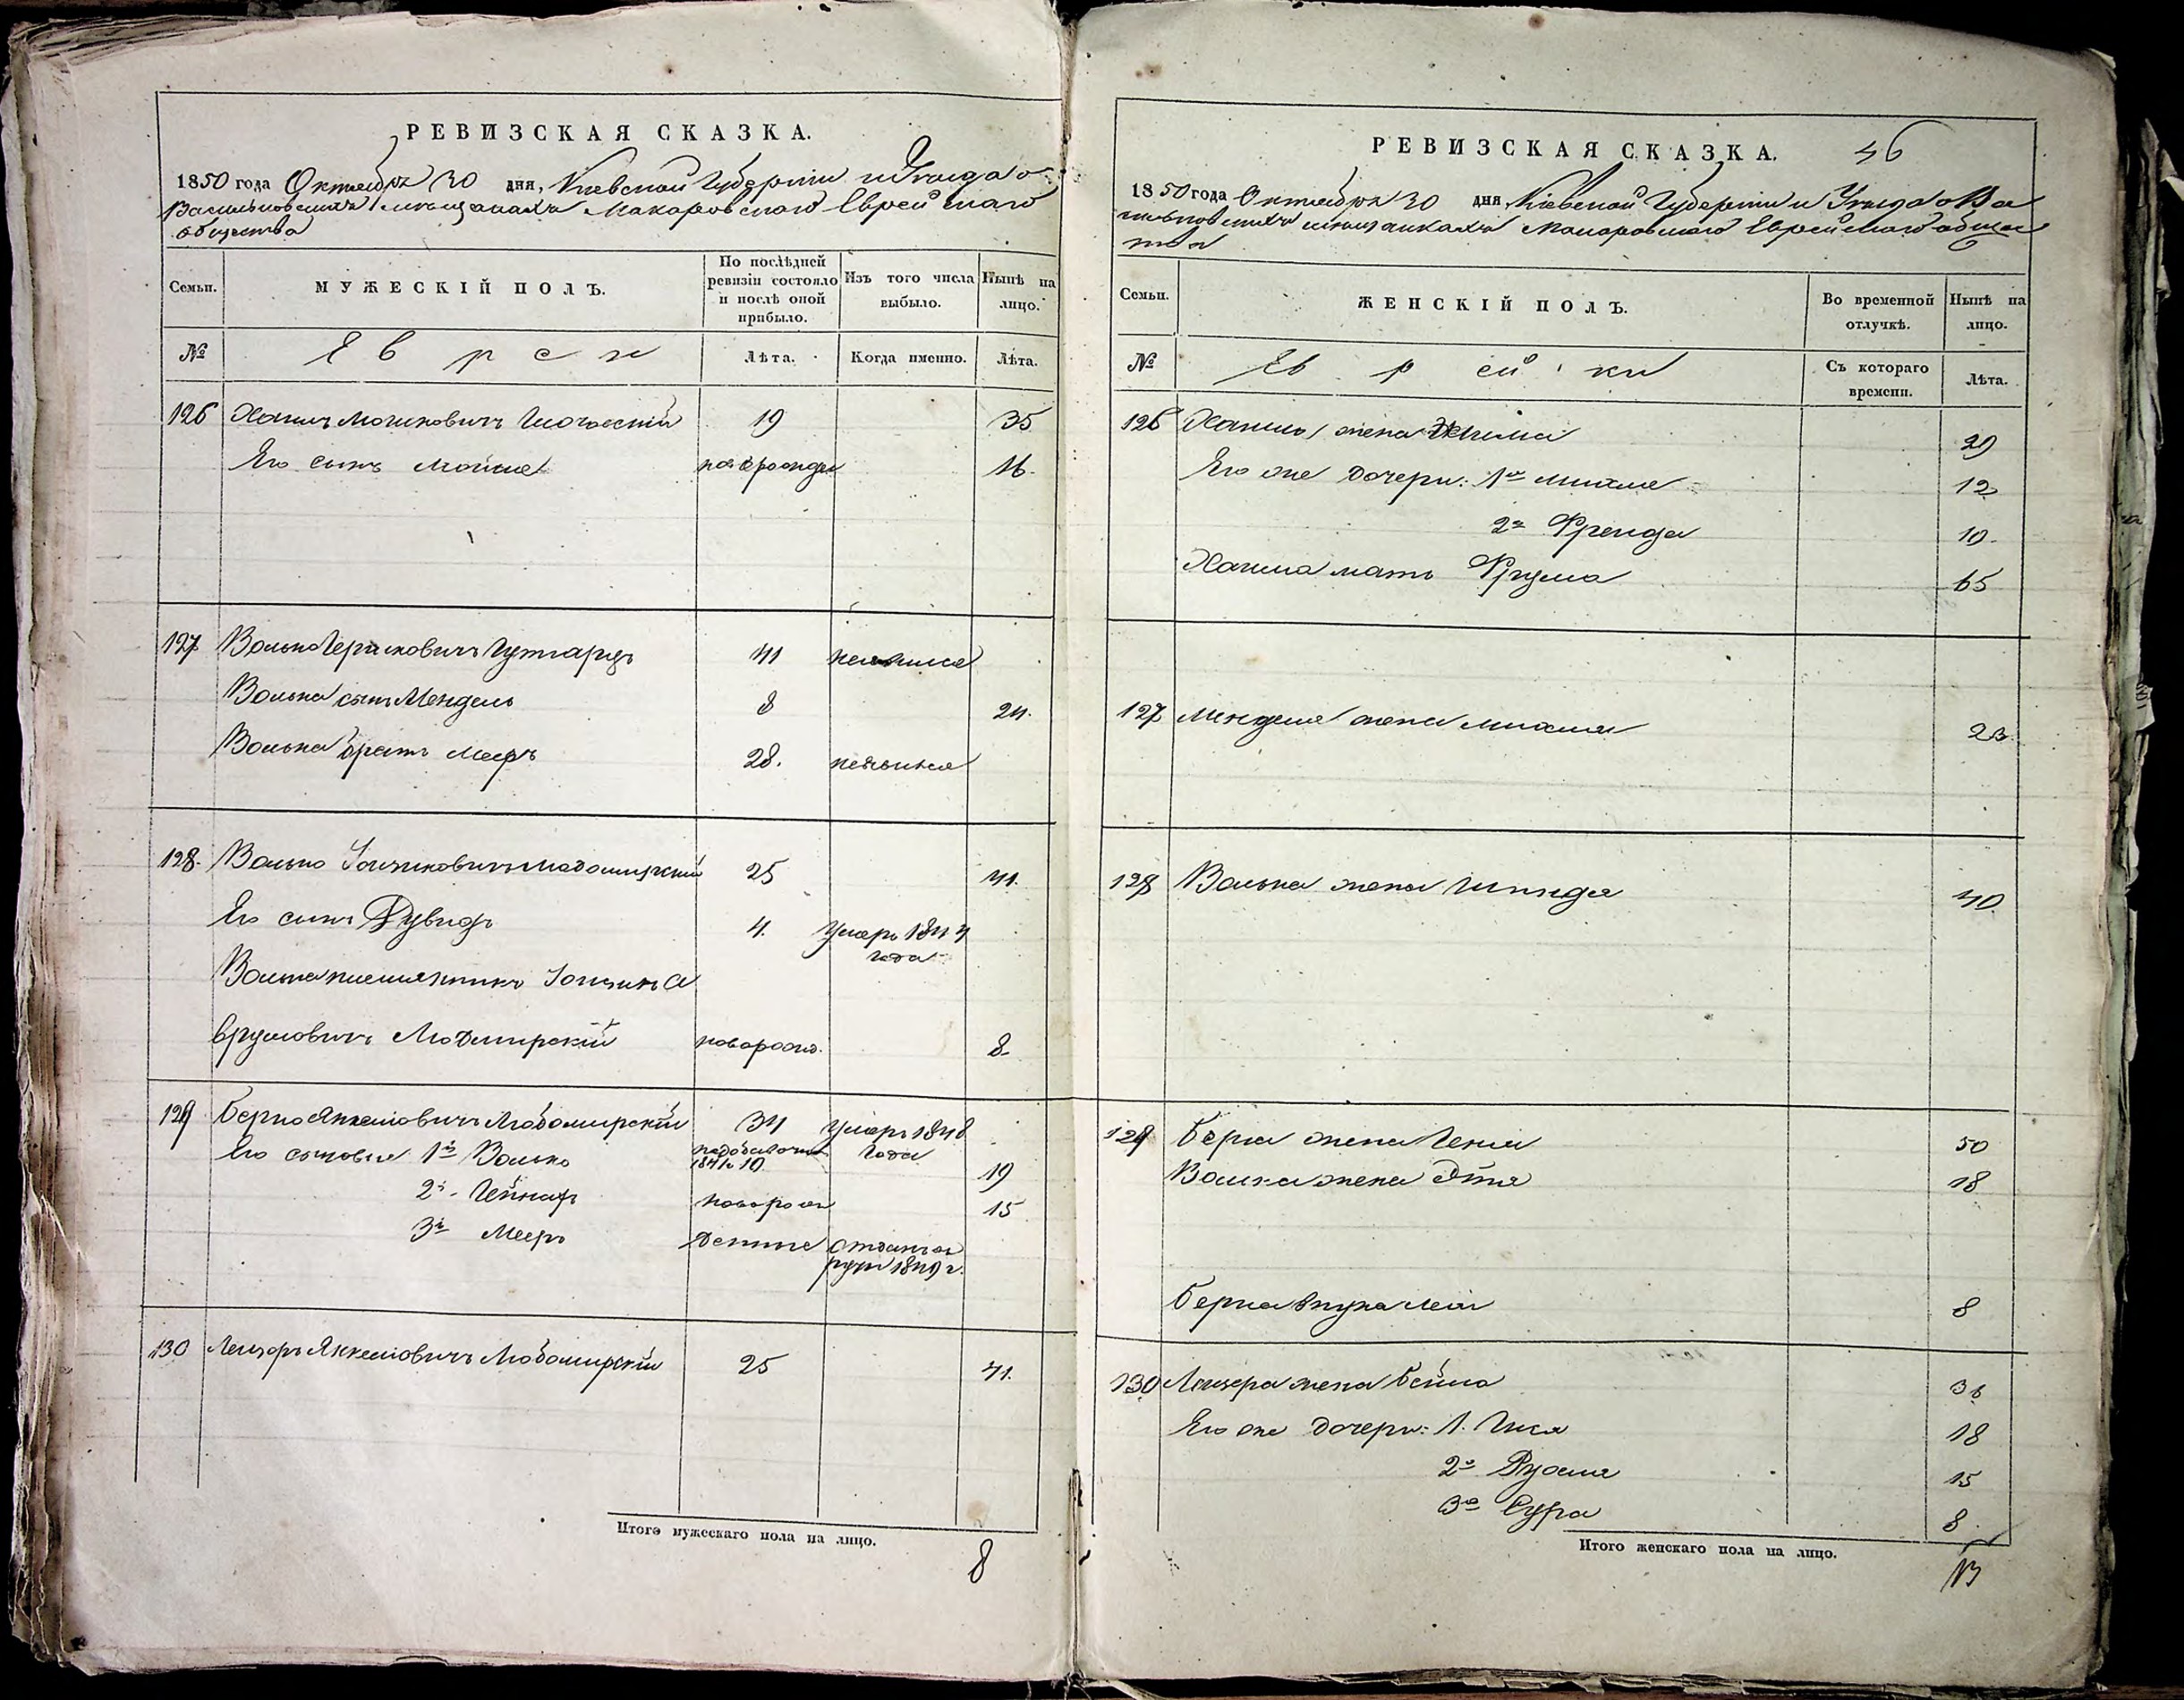 РЕВИЗСКАЯ СКАЗКА.
1850 года Октября 30 дня, Киевской Губернии и Уезда о
Васильковскихъ мещанахъ Макаровскаго Еврейскаго
общества
Семьи.
МУЖЕСКІЙ ПОЛЪ.
По послѣдней ревизіи состояло и послѣ оной прибыло.
Изъ того числа выбыло.
Нынѣ на лицо.
№
Евреи
Лѣта.
Когда именно.
Лѣта.
126 Ханинъ Мошковичъ 19 35
Его сынъ Мойше новорожден 16.
127 Волько Гершковичъ 41 неявился
Волька сынъ Мендель 8 24.
Волька братъ Мееръ 28. неявился
128. Волько Іойнковичъ Любомирскій 25 41.
Его сынъ Дувидъ 4. умеръ 1844
года
Волька племянникъ А
врумовичъ Любомирскій новорожд. 8.
129 Берко Янкелiовичъ Любомирскій 34 умеръ 1848
года
Его сыновья 1й Волько 1841го 10 19
2й новорож 15
3й Мееръ отданъ въ
рекруты 1849 г.
130 Лейзоръ Янкелiовичъ Любомирскій 25 41.
Итого мужескаго пола на лицо.
8
РЕВИЗСКАЯ СКАЗКА.
46
1850 года Октября 30 дня, Киевской Губернии и Уезда о Ва
сильковскихъ мещанкахъ Макаровскаго Еврейскаго общес
тва
Семьи.
ЖЕНСКІЙ ПОЛЪ.
Во временной отлучкѣ.
Нынѣ на лицо.
№
Еврейки
Съ котораго времени.
Лѣта.
126 Ханина жена 29
Его же дочери: 1я Михля 12
2я Фрейда 10.
Ханина мать Фрума 65
127 Менделя жена Михля 23.
128 Волька жена Шейндя 40
129 Берка жена Геня 50
Волька жена Этя 18
Берка внука Лея 8
130 Лейзера жена Бейла 36
Его же дочери: 1. 18
2я Рухля 15
3я Сура 8.
Итого женскаго пола на лицо.
13